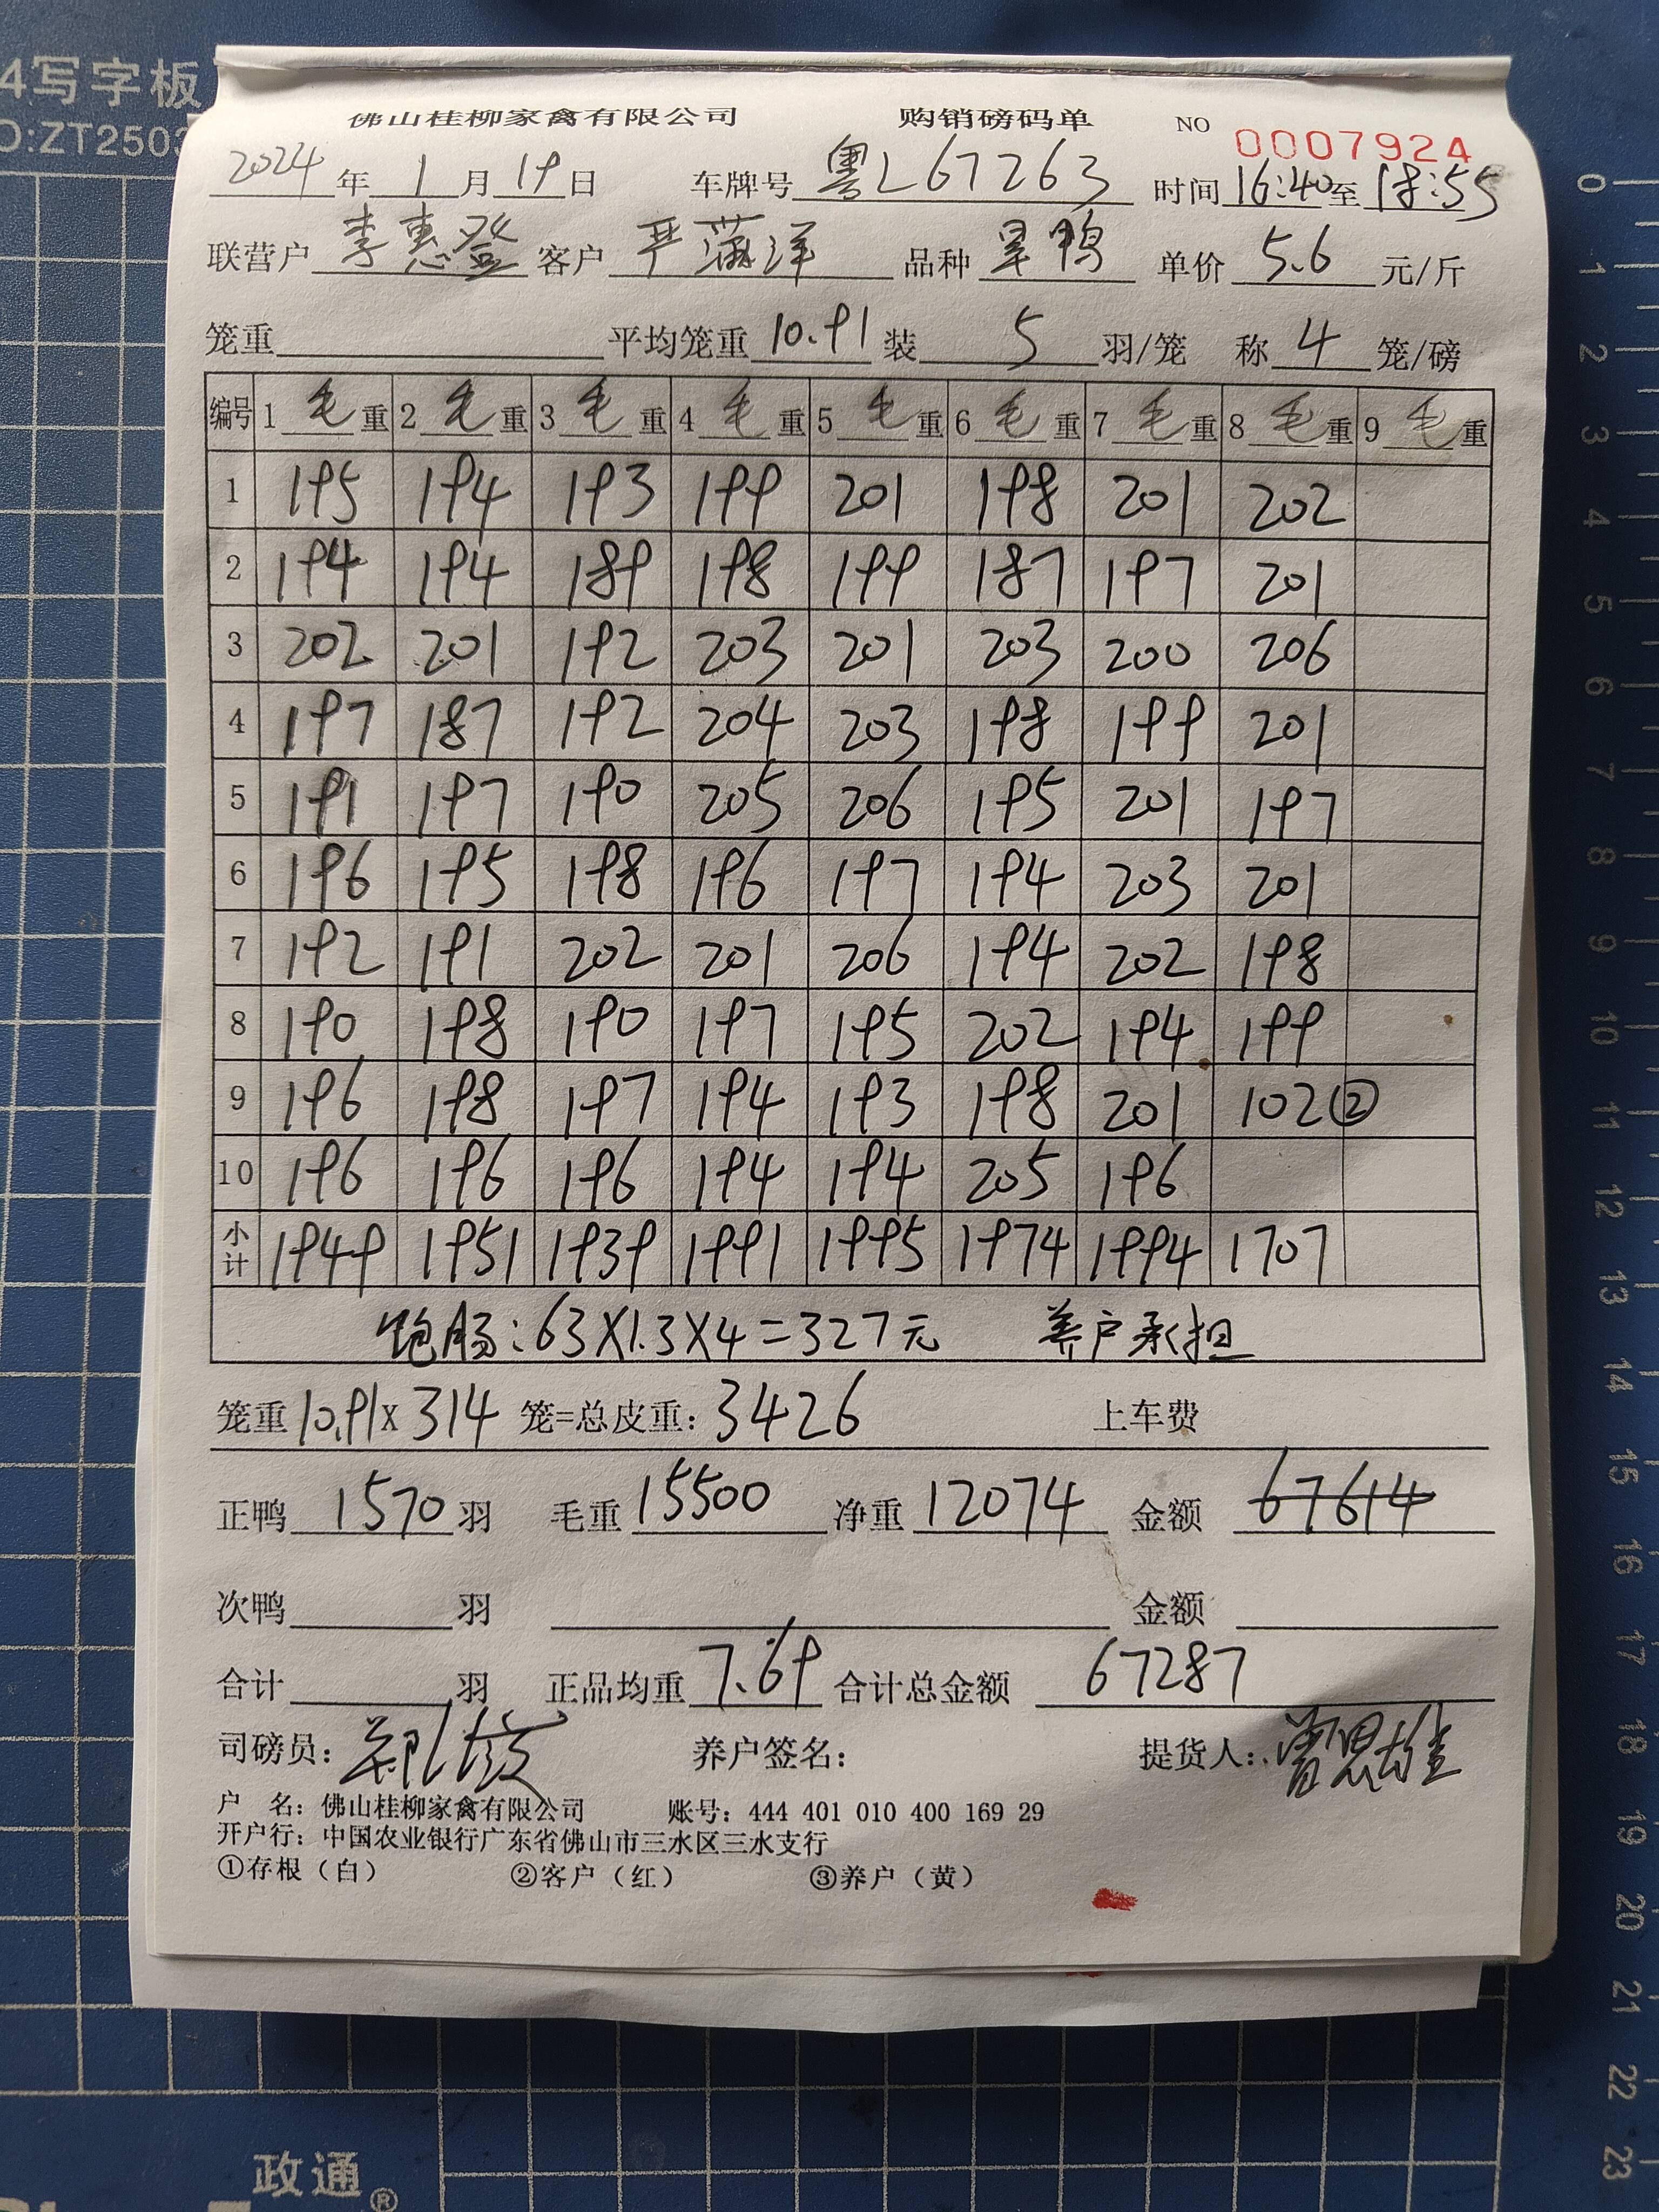 4写字板
O:ZT2503
佛山桂柳家禽有限公司 购销磅码单 NO 0007924
2024年1月19日 车牌号 粤L67263 时间 16:40 至 18:55
联营户 李惠登 客户 严满洋 品种 旱鸭 单价 5.6 元/斤
笼重 平均笼重 10.91 装 5 羽/笼 称 4 笼/磅
编号 1 毛 重 2 毛 重 3 毛 重 4 毛 重 5 毛 重 6 毛 重 7 毛 重 8 毛 重 9 毛 重
1 195 194 193 199 201 198 201 202
2 194 194 189 198 199 187 197 201
3 202 201 192 203 201 203 200 206
4 197 187 192 204 203 198 199 201
5 191 197 190 205 206 195 201 197
6 196 195 198 196 197 194 203 201
7 192 191 202 201 206 194 202 198
8 190 198 190 197 195 202 194 199
9 196 198 197 194 193 198 201 102②
10 196 196 196 194 194 205 196
小计 1949 1951 1939 1991 1995 1974 1994 1707
饱肠:63X1.3X4=327元 养户承担
笼重 10.91 x 314 笼=总皮重: 3426 上车费
正鸭 1570 羽 毛重 15500 净重 12074 金额 67614
次鸭 羽 金额
合计 羽 正品均重 7.69 合计总金额 67287
司磅员: 养户签名: 提货人:
户 名:佛山桂柳家禽有限公司 账号:444 401 010 400 169 29
开户行:中国农业银行广东省佛山市三水区三水支行
①存根(白) ②客户(红) ③养户(黄)
0
1
2
3
4
5
6
7
8
9
10
11
12
13
14
15
16
17
18
19
20
21
22
23
政通®